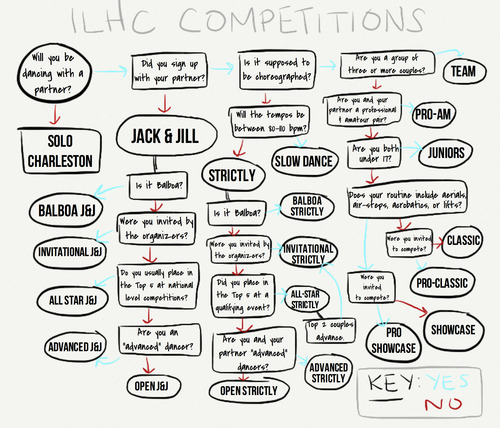 ILHC COMPETITIONS
Will you be
dancing with a
partner?
SOLO
CHARLESTON
Did you sign up
with your partner?
JACK & JILL
Is it Balboa?
BALBOA J&J
Were you invited
by the
organizers?
INVITATIONAL J&J
Do you usually place
in the
Top 5 at national
level competitions?
ALL STAR J&J
Are you an
"advanced" dancer?
ADVANCED J&J
OPEN J&J
Is it supposed to
be choreographed?
Will the tempos be
between 30-80 bpm?
SLOW DANCE
STRICTLY
Is it Balboa?
BALBOA
STRICTLY
Were you invited by
the organizers?
INVITATIONAL
STRICTLY
Did you place in
the Top 5 at a
qualifying event?
ALL-STAR
STRICTLY
Top 2 couples
advance.
Are you and your
partner "advanced"
dancers?
ADVANCED
STRICTLY
OPEN STRICTLY
Are you a group of
three or more couples?
TEAM
Are you and your
partner a professional
& amateur pair?
PRO-AM
Are you both
under 17?
JUNIORS
Does your routine include aerials,
air-steps, acrobatics, or lifts?
Were you invited
to compete?
CLASSIC
PRO-CLASSIC
Were you
invited to
compete?
SHOWCASE
PRO
SHOWCASE
KEY: YES
NO